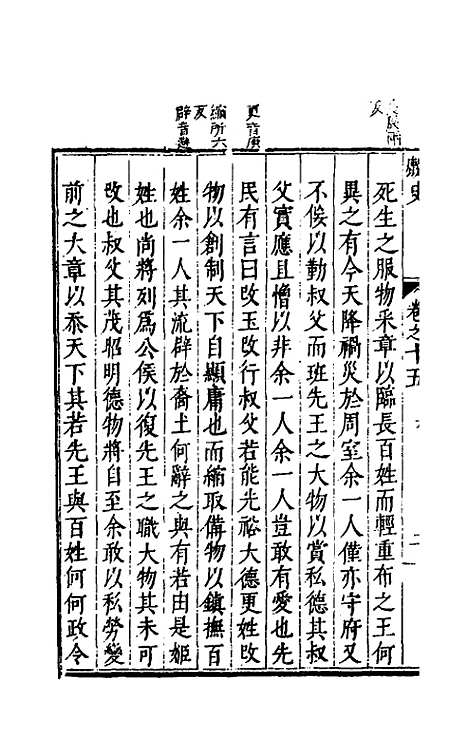 長展兩
反
更音庚
縮所六
反
辟音避
歷史
卷之十五
死生之服物采章以臨長百姓而輕重布之王何
異之有今天降禍災於周室余一人僅亦守府又
不佞以勤叔父而班先王之大物以賞私德其叔
父實應且憎以非余一人余一人豈敢有愛也先
民有言曰改玉改行叔父若能光裕大德更姓改
物以創制天下自顯庸也而縮取備物以鎮撫百
姓余一人其流辟於裔土何辭之與有若由是姬
姓也尚將列爲公侯以復先王之職大物其未可
改也叔父其茂昭明德物將自至余敢以私勞變
前之大章以忝天下其若先王與百姓何何政令